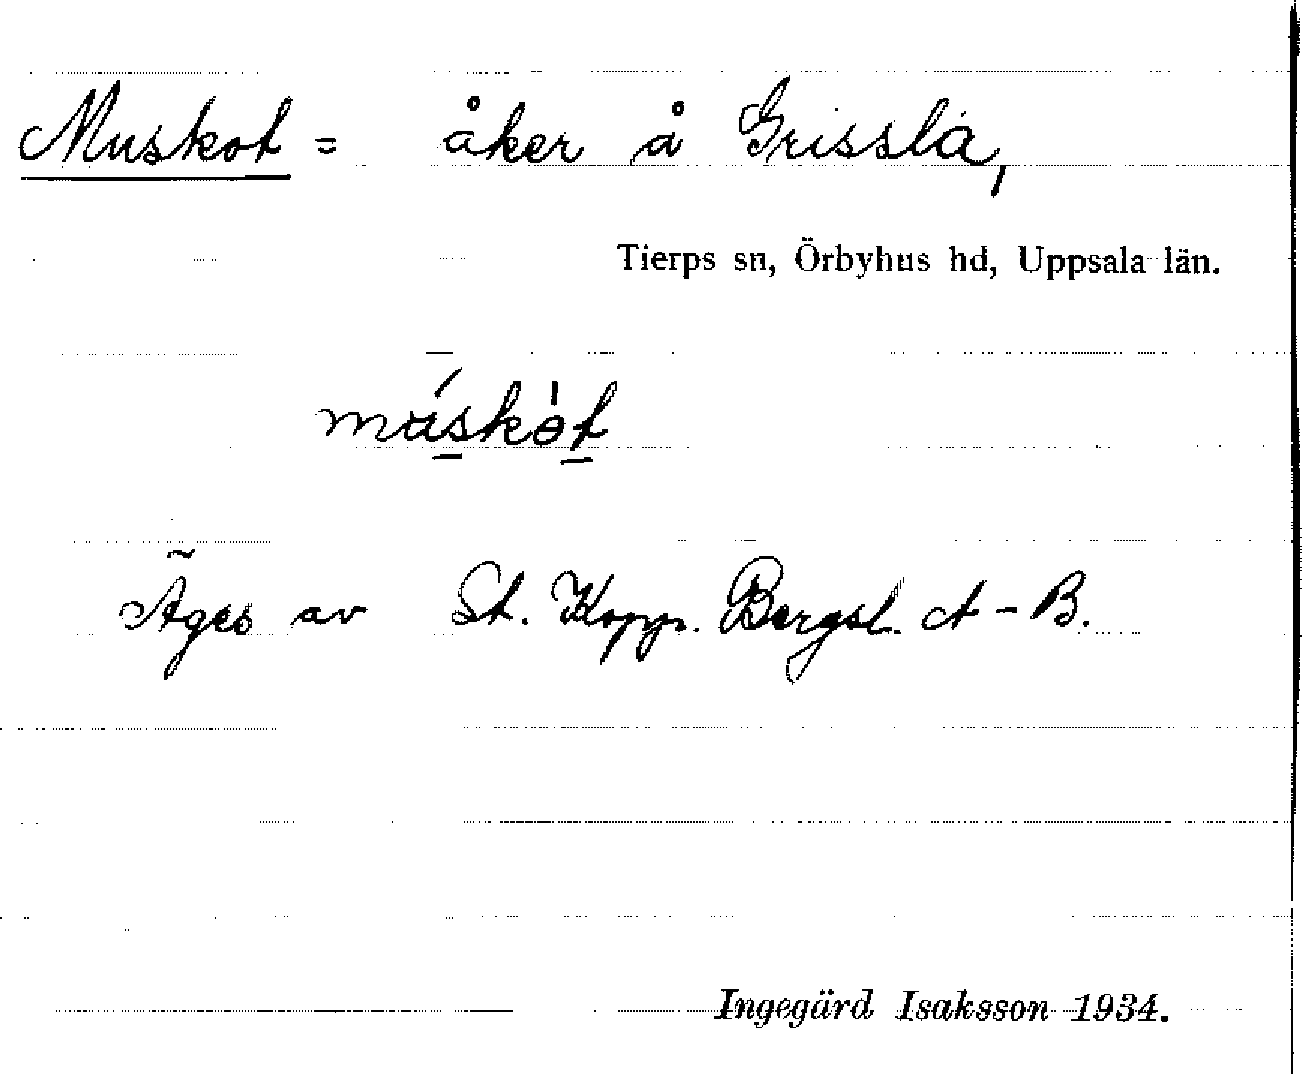 Muskot = åker å Grissla,
Tierps sn, Örbyhus hd, Uppsala län.
múskòt
Äges av St. Kopp. Bergsl. A-B.
Ingegärd Isaksson 1934.